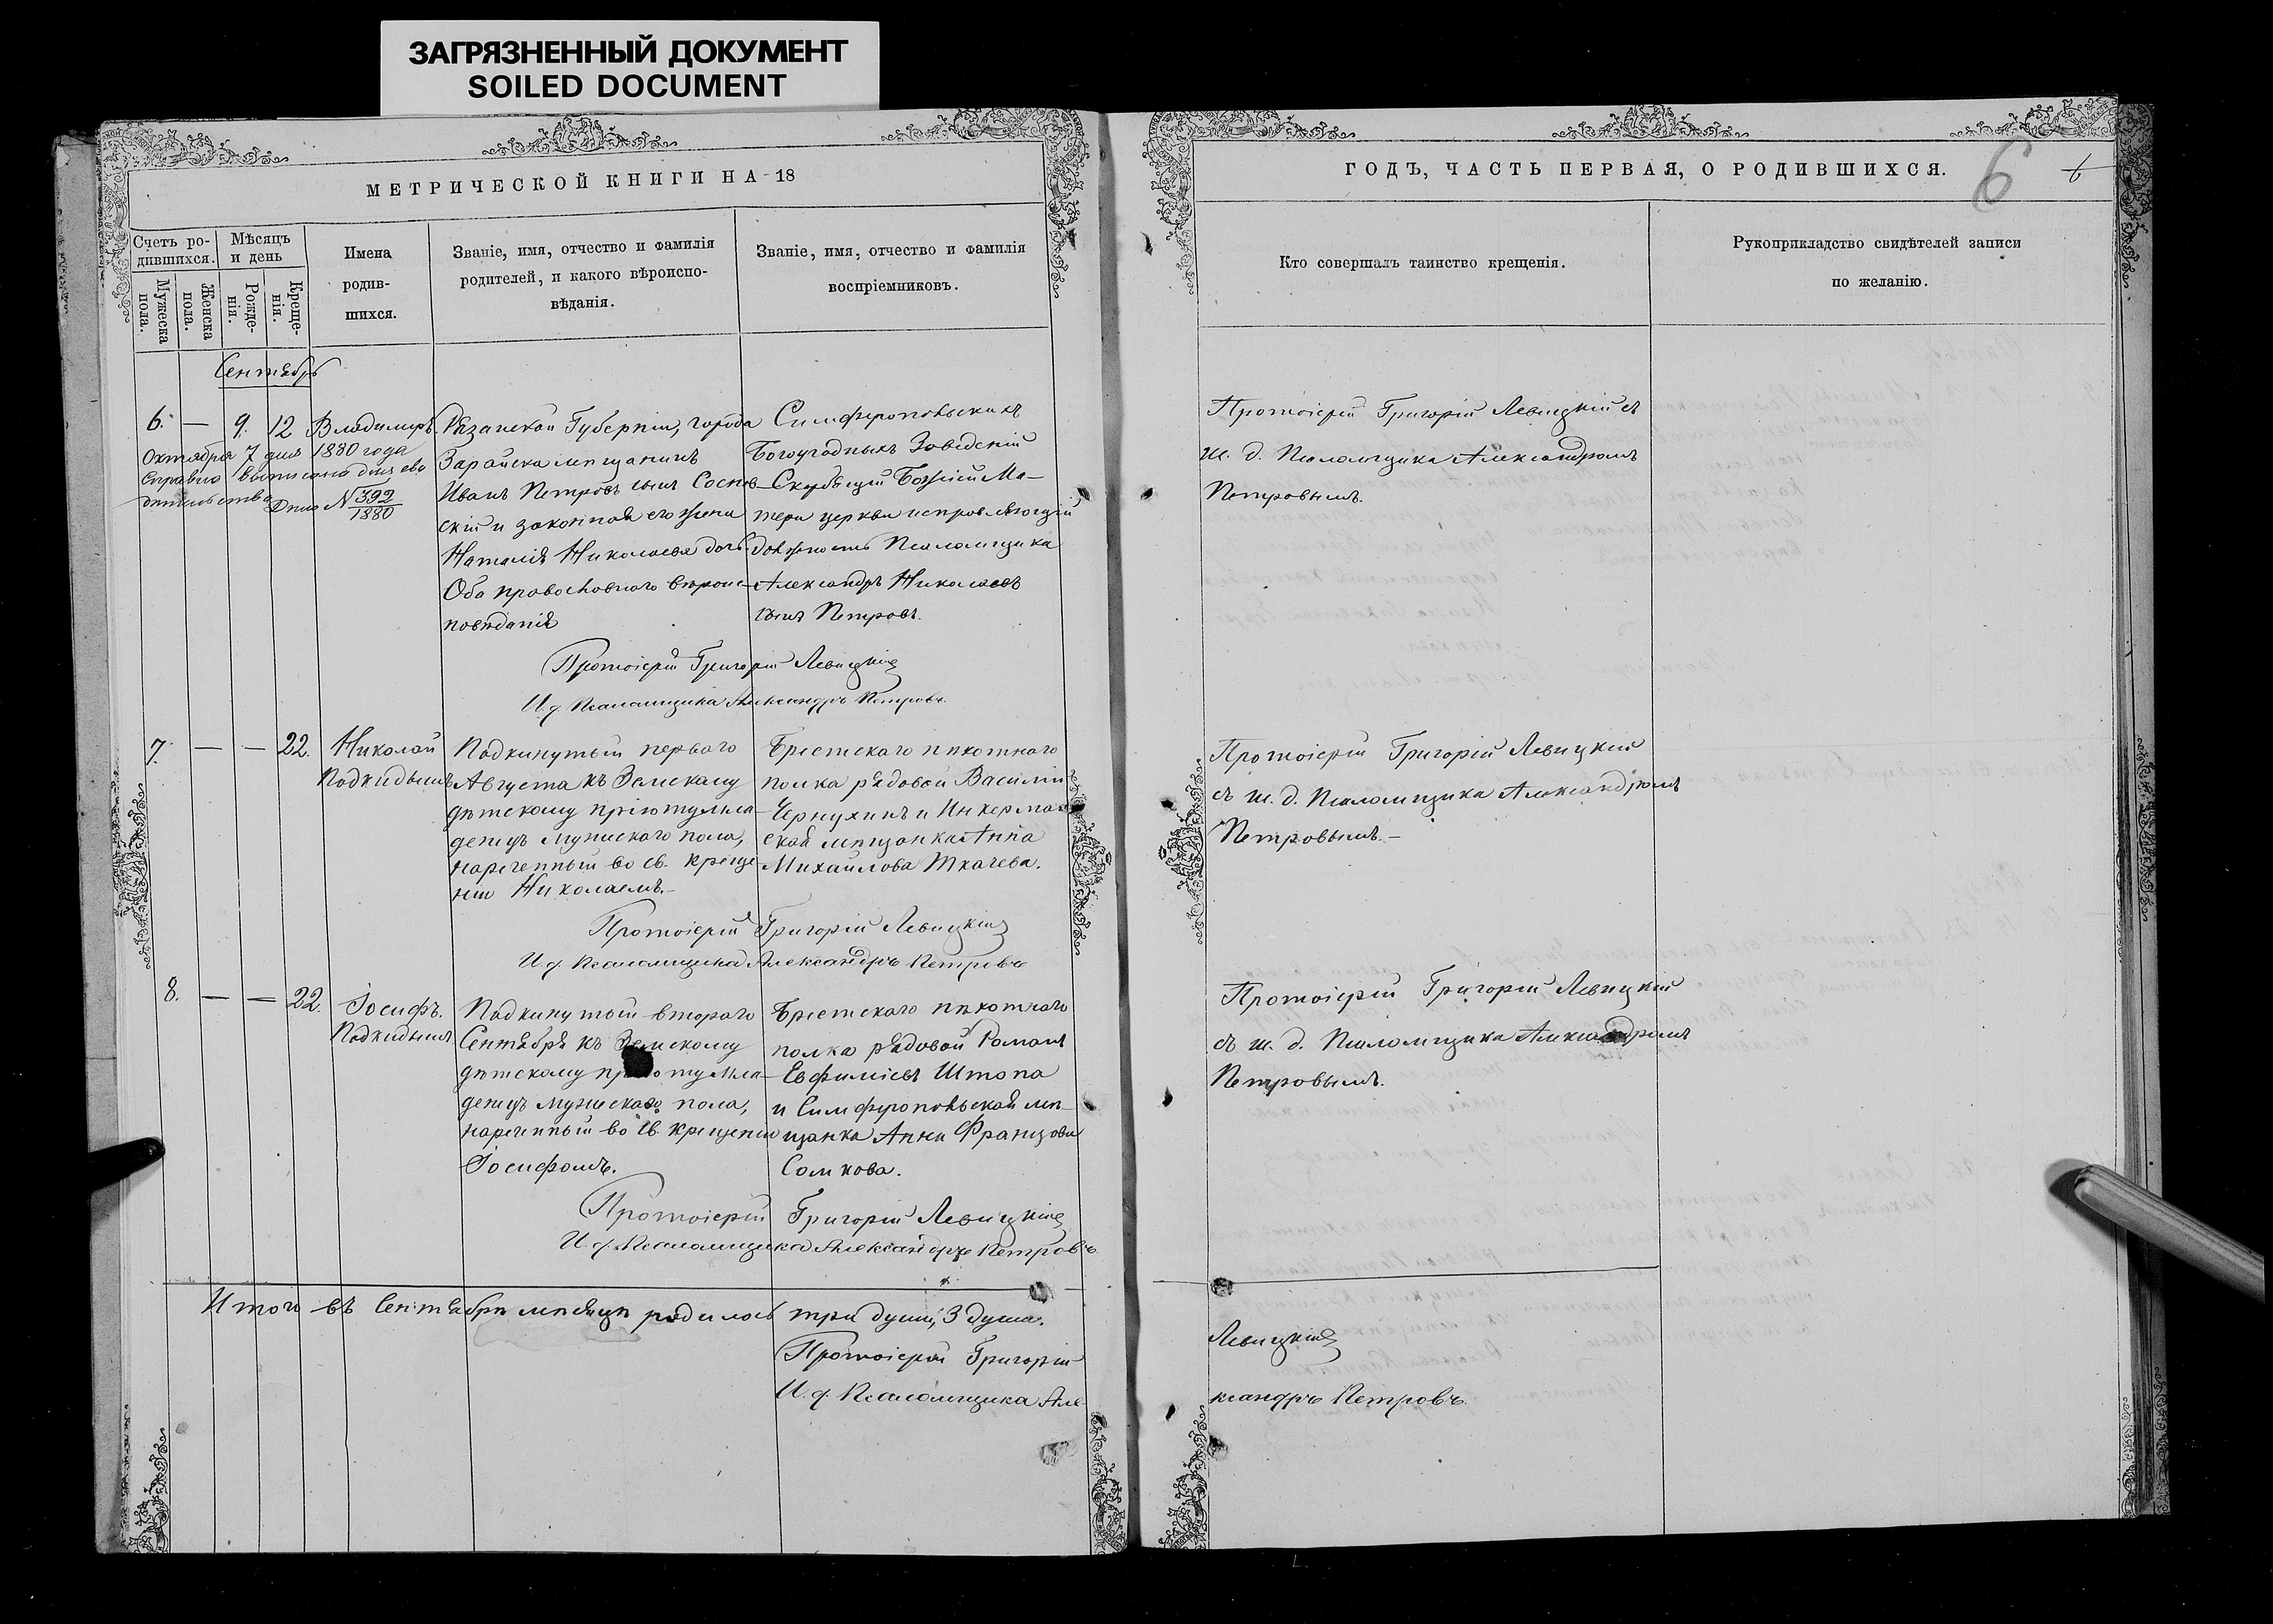 ЗАГРЯЗНЕННЫЙ ДОКУМЕНТ
SOILED DOCUMENT
МЕТРИЧЕСКОЙ КНИГИ НА 18
Счетъ ро-
дившихся.
Мѣсяцъ
и день
Мужеска
пола.
Женска
пола.
Рожде-
нія.
Креще-
нія.
Имена
родив-
шихся.
Званіе, имя, отчество и фамилія
родителей, и какого вѣроиспо-
вѣданія.
Званіе, имя, отчество и фамилія
воспріемниковъ.
Сентябрь
6. — 9. 12 Владиміръ.
Октября 7 дня 1880 года
справка выписана для сви
дѣтельства
№ 392
1880
Рязанской Губерніи, города
Зарайска мѣщанинъ
Иванъ Петровъ сынъ Соснов-
скій и законная его жена
Наталія Николаева дочь.
Оба православнаго вѣроис-
повѣданія
Симферопольскихъ
Богоугодныхъ Заведеній
Скорбящей Божіей Ма-
тери церкви исправляющій
должность Псаломщика
Александръ Николаевъ
сынъ Петровъ.
Протоіерей Григорій Левицкій
И. д. Псаломщика Александръ Петровъ
7. — — 22. Николай
Подкидышъ
Подкинутый перваго
Августа къ Земскому
дѣтскому пріюту мла-
денецъ мужескаго пола,
нареченный во св. креще
ніи Николаемъ.—
Брестскаго пѣхотнаго
полка рядовой Василій
Чернухинъ и Инкерман
ская мѣщанка Анна
Михайлова Ткачева.
Протоіерей Григорій Левицкій
И. д. Псаломщика Александръ Петровъ
8. — — 22. Іосифъ.
Подкидышъ
Подкинутый втораго
Сентября къ Земскому
дѣтскому пріюту мла-
денецъ мужескаго пола,
нареченный во св. крещеніи
Іосифомъ.
Брестскаго пѣхотнаго
полка рядовой Романъ
Евфиміевъ Штопа
и Симферопольская мѣ-
щанка Анна Францова
Сомкова.
Протоіерей Григорій Левицкій
И. д. Псаломщика Александръ Петровъ
Итого въ Сентябрѣ мѣсяцѣ родилось три души, 3 души.
Протоіерей Григорій
И. д. Псаломщика Але-
ГОДЪ, ЧАСТЬ ПЕРВАЯ, О РОДИВШИХСЯ.
6
6
Кто совершалъ таинство крещенія.
Рукоприкладство свидѣтелей записи
по желанію.
Протоіерей Григорій Левицкій съ
и. д. Псаломщика Александромъ
Петровымъ.
Протоіерей Григорій Левицкій
съ и. д. Псаломщика Александромъ
Петровымъ.—
Протоіерей Григорій Левицкій
съ и. д. Псаломщика Александромъ
Петровымъ.
Левицкій
ксандръ Петровъ.